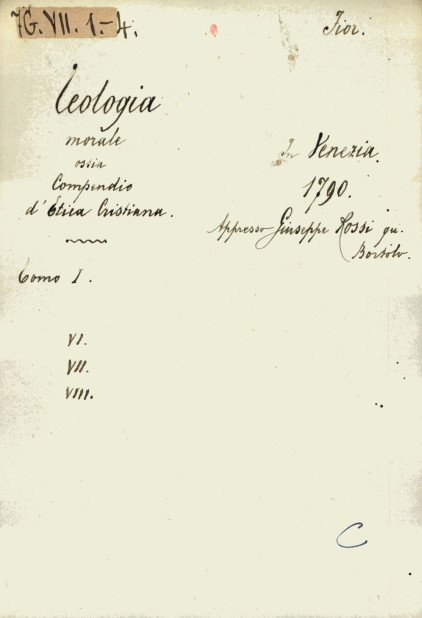 7G. VII. 1.-4.
Fior.
Teologia
morale
ossia
Compendio
d'Etica Cristiana.
Tomo I.
VI.
VII.
VIII.
In Venezia.
1790.
Appresso Giuseppe Rossi qu.
Bortolo.
C